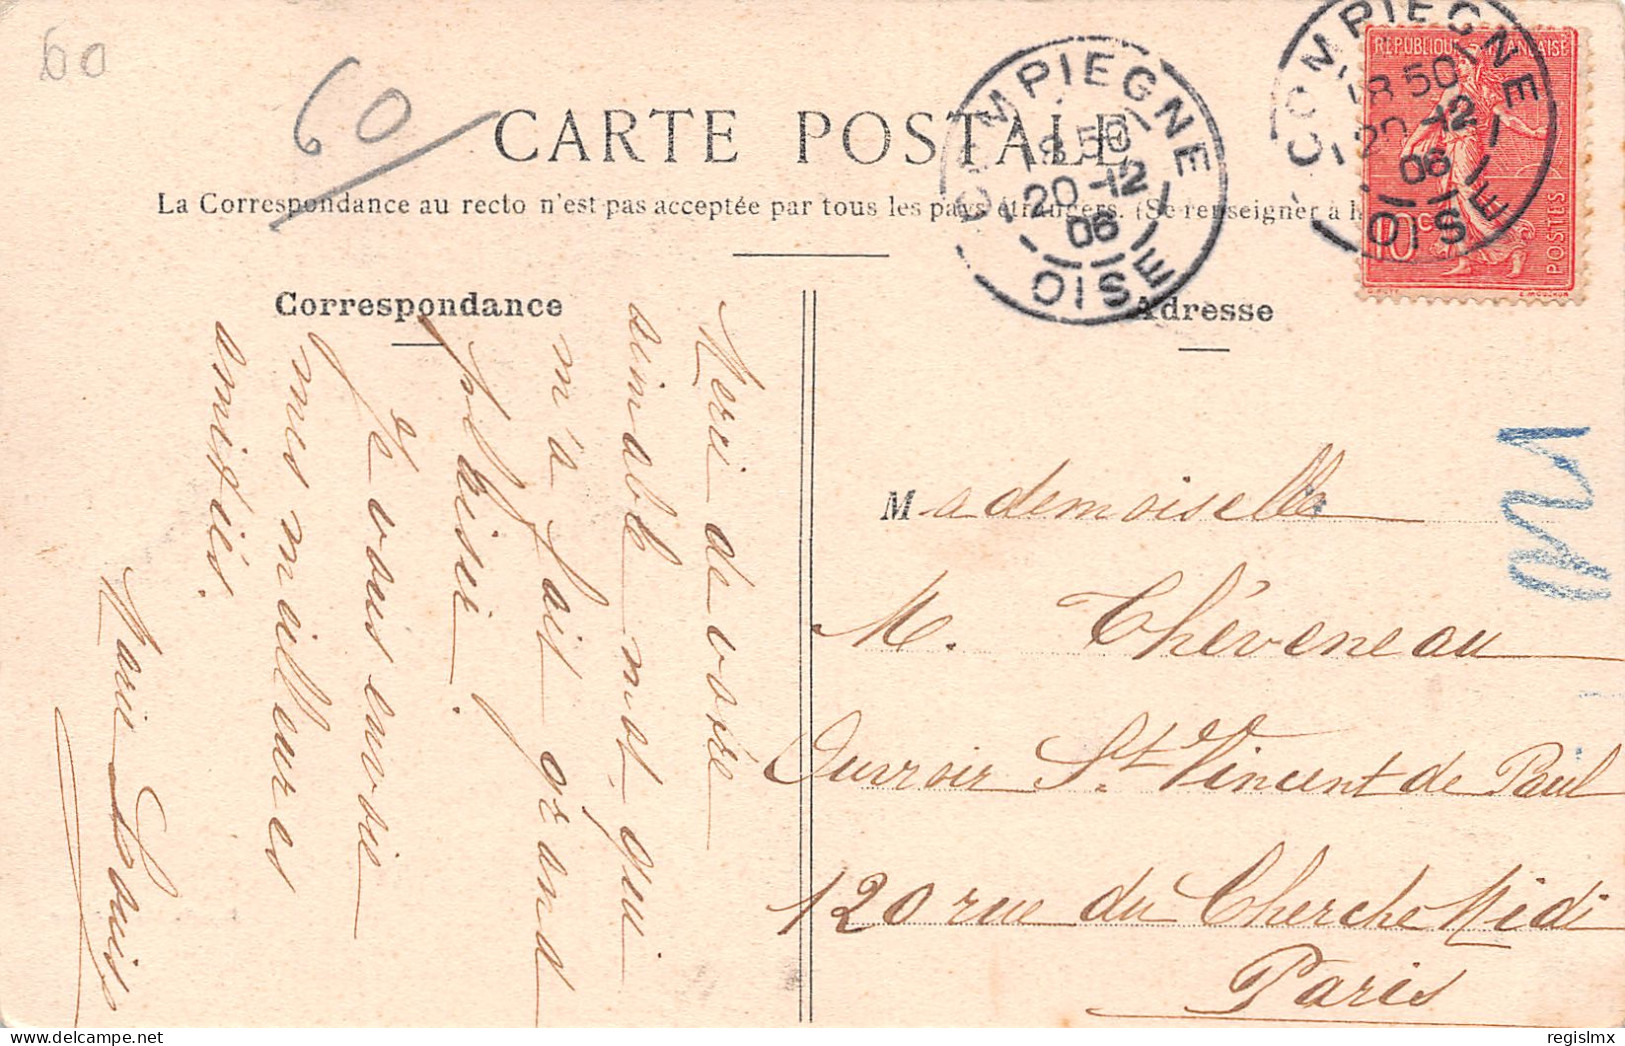 60
60
CARTE POSTALE
La Correspondance au recto n'est pas acceptée par tous les pays étrangers. (Se renseigner à
Correspondance
Adresse
COMPIEGNE
18 50
20 -12
06
OISE
COMPIEGNE
18 50
20 -12
06
OISE
REPUBLIQUE FRANÇAISE
10 c
POSTES
Merci de votre
aimable mot, qui
m'a fait grand
plaisir.
Je vous envoie
mes meilleures
amitiés.
Marie Louise
Mademoiselle
M. Théveneau
Ouvroir St. Vincent de Paul
120 rue du Cherche Midi
Paris
regislmx